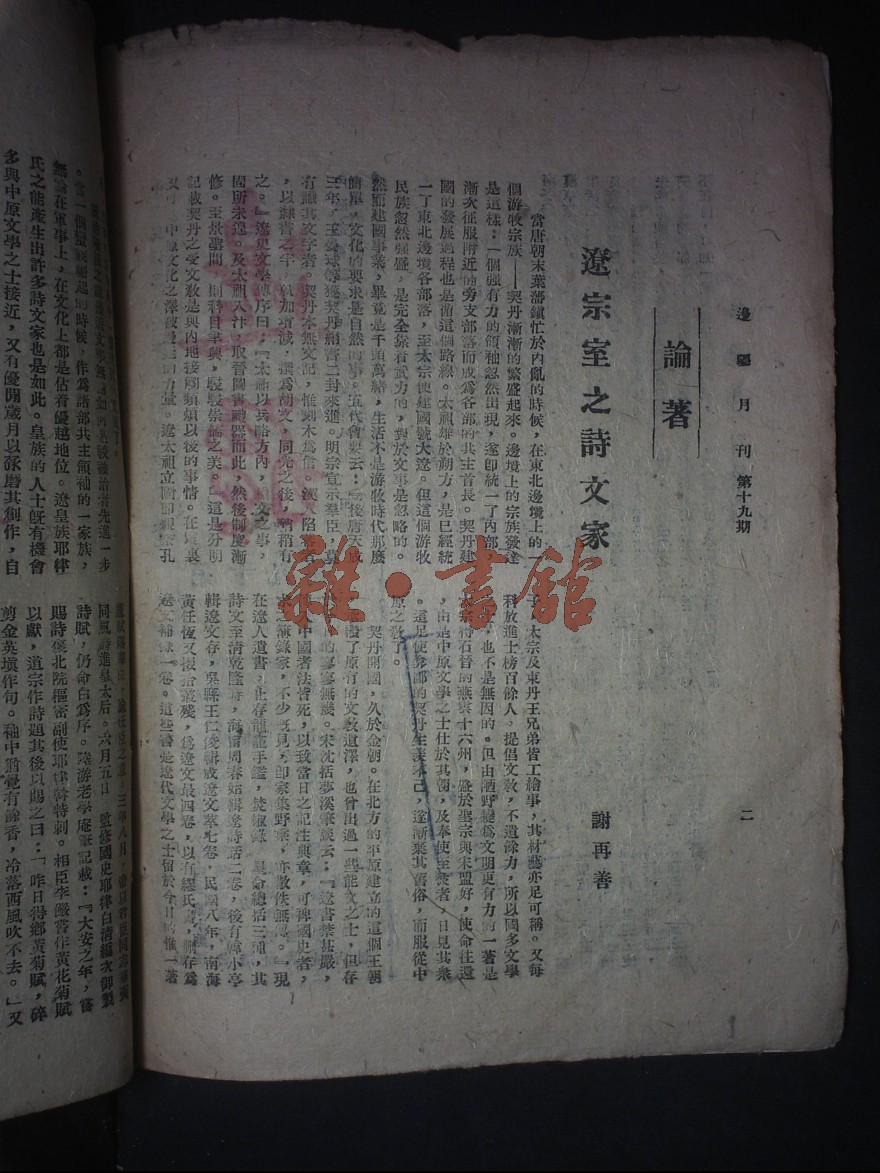 邊疆月刊 第十九期
二
論著
遼宗室之詩文家
謝再善
當唐朝末葉藩鎮忙於內亂的時候，在東北邊境上的一
個游牧宗族——契丹漸漸的繁盛起來。邊境上的宗族發達
是這樣：一個强有力的領袖忽然出現，遂卽統一了內部，
漸次征服附近的旁支部落而成爲各部的共主首長。契丹建
國的發展過程也是循這個路線。太祖雄於朔方，是已經統
一了東北邊境各部落，至太宗便建國號大遼。但這個游牧
民族忽然强盛，是完全靠着武力的，對於文事是忽略的。
然而建國事業，畢竟是千頭萬緒，生活不是游牧時代那麼
簡單，文化的要求是自然的事。五代會要云：『後唐天成
三年，
契丹絹書二封來進。明宗宣示羣臣，莫
有識其文字者。契丹本無文記，惟刻木爲信，漢人陷蕃者
，以隸書之半，就加增減，撰爲胡文，同光之後，稍稍有
之。』遼史文學傳序曰：『太祖以兵略方內，
文之事，
固所未遑。及太宗入汴，取晉圖書禮器而北，然後制度漸
修。至景聖間，則科目聿興，
崇儒之美。』這是分明
記載契丹之受文敎是與內地接觸頻繁以後的事情。在這裏
遼太祖立國卽親祭孔
子，太宗及東丹王兄弟皆工繪事，其材藝亦足可稱。又每
科放進士榜百餘人。提倡文敎，不遺餘力，所以國多文學
之士，也不是無因的。但由酒野變爲文明更有力的一著是
太宗得石晉的燕雲十六州，盛於聖宗與宋盟好，使命往還
，由是中原文學之士仕於其國，及奉使至遼者，日見其衆
。這足使
的契丹生
不已，遂漸棄其舊俗，而服從中
原之敎了。
契丹開國，久於金朝。在北方的平原建立的這個王朝
發了原有的文敎遺澤，也曾出過一些能文之士，但存
的
寥寥無幾。宋沈括夢溪筆談云：『遼書禁甚嚴，
中國者法皆死，以致當日之記注典章，可裨國史者，
之
錄家，不少
見，卽家集野乘，亦散佚無
。』現
在遼人遺書，止存龍龕手鑑，焚椒錄，星命總括三種，其
詩文至清乾隆時，海甯周春始輯遼詩話二卷，後有
小亭
輯遼文存，吳縣王仁俊輯成遼文萃七卷，民國八年，南海
黃任恆又掇拾叢殘，爲遼文最四卷，以有繆氏書，刪存爲
遼文補錄一卷。這些書是遼代文學之士留於今日的惟一著
。當一個宗族崛起的時候，作爲諸部共主領袖的一家族，
無論在軍事上，在文化上都是佔着優越地位。遼皇族耶律
氏之能產生出許多詩文家也是如此。皇族的人士旣有機會
多與中原文學之士接近，又有優閒歲月以琢磨其創作，自
同風詩進皇太后。六月五日，監修國史耶律白請編次御製
詩賦，仍命白爲序。陸游老學庵筆記載：『大安之年，嘗
賜詩
北院樞密副使耶律斡特剌。相臣李儼嘗作黃花菊賦
以獻，道宗作詩題其後以賜之曰：「昨日得鄉黃菊賦，碎
剪金英塡作句。袖中猶覺有餘香，冷落西風吹不去。」又
雜·書館